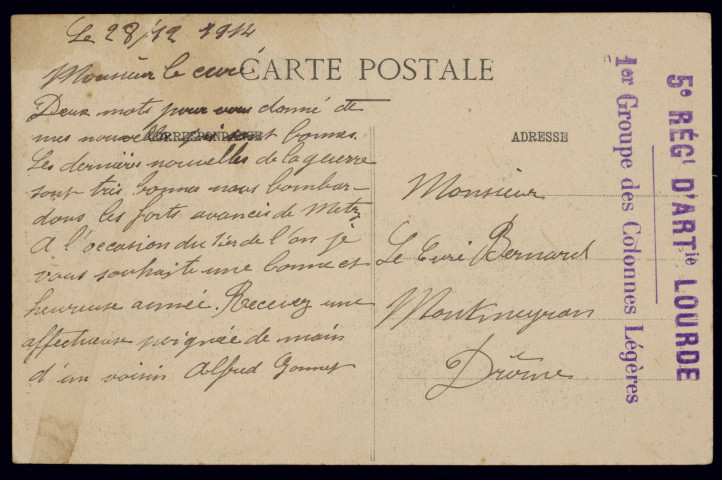 Le 28/12 1914
Monsieur le curé
CARTE POSTALE
Deux mots pour vous donné de
mes nouvelles qui sont bonnes.
CORRESPONDANCE
Les dernières nouvelles de la guerre
sont très bonnes nous bombar-
dons les forts avancés de Metz,
A l'occasion du 1ier de l'an je
vous souhaite une bonne et
heureuse année. Recevez une
affectueuse poignée de main
d'un voisin Alfred Gonnet
ADRESSE
Monsieur
Le Curé Bernard
Montmeyran
Drôme
5e RÉGt D'ARTie LOURDE
1er Groupe des Colonnes Légères